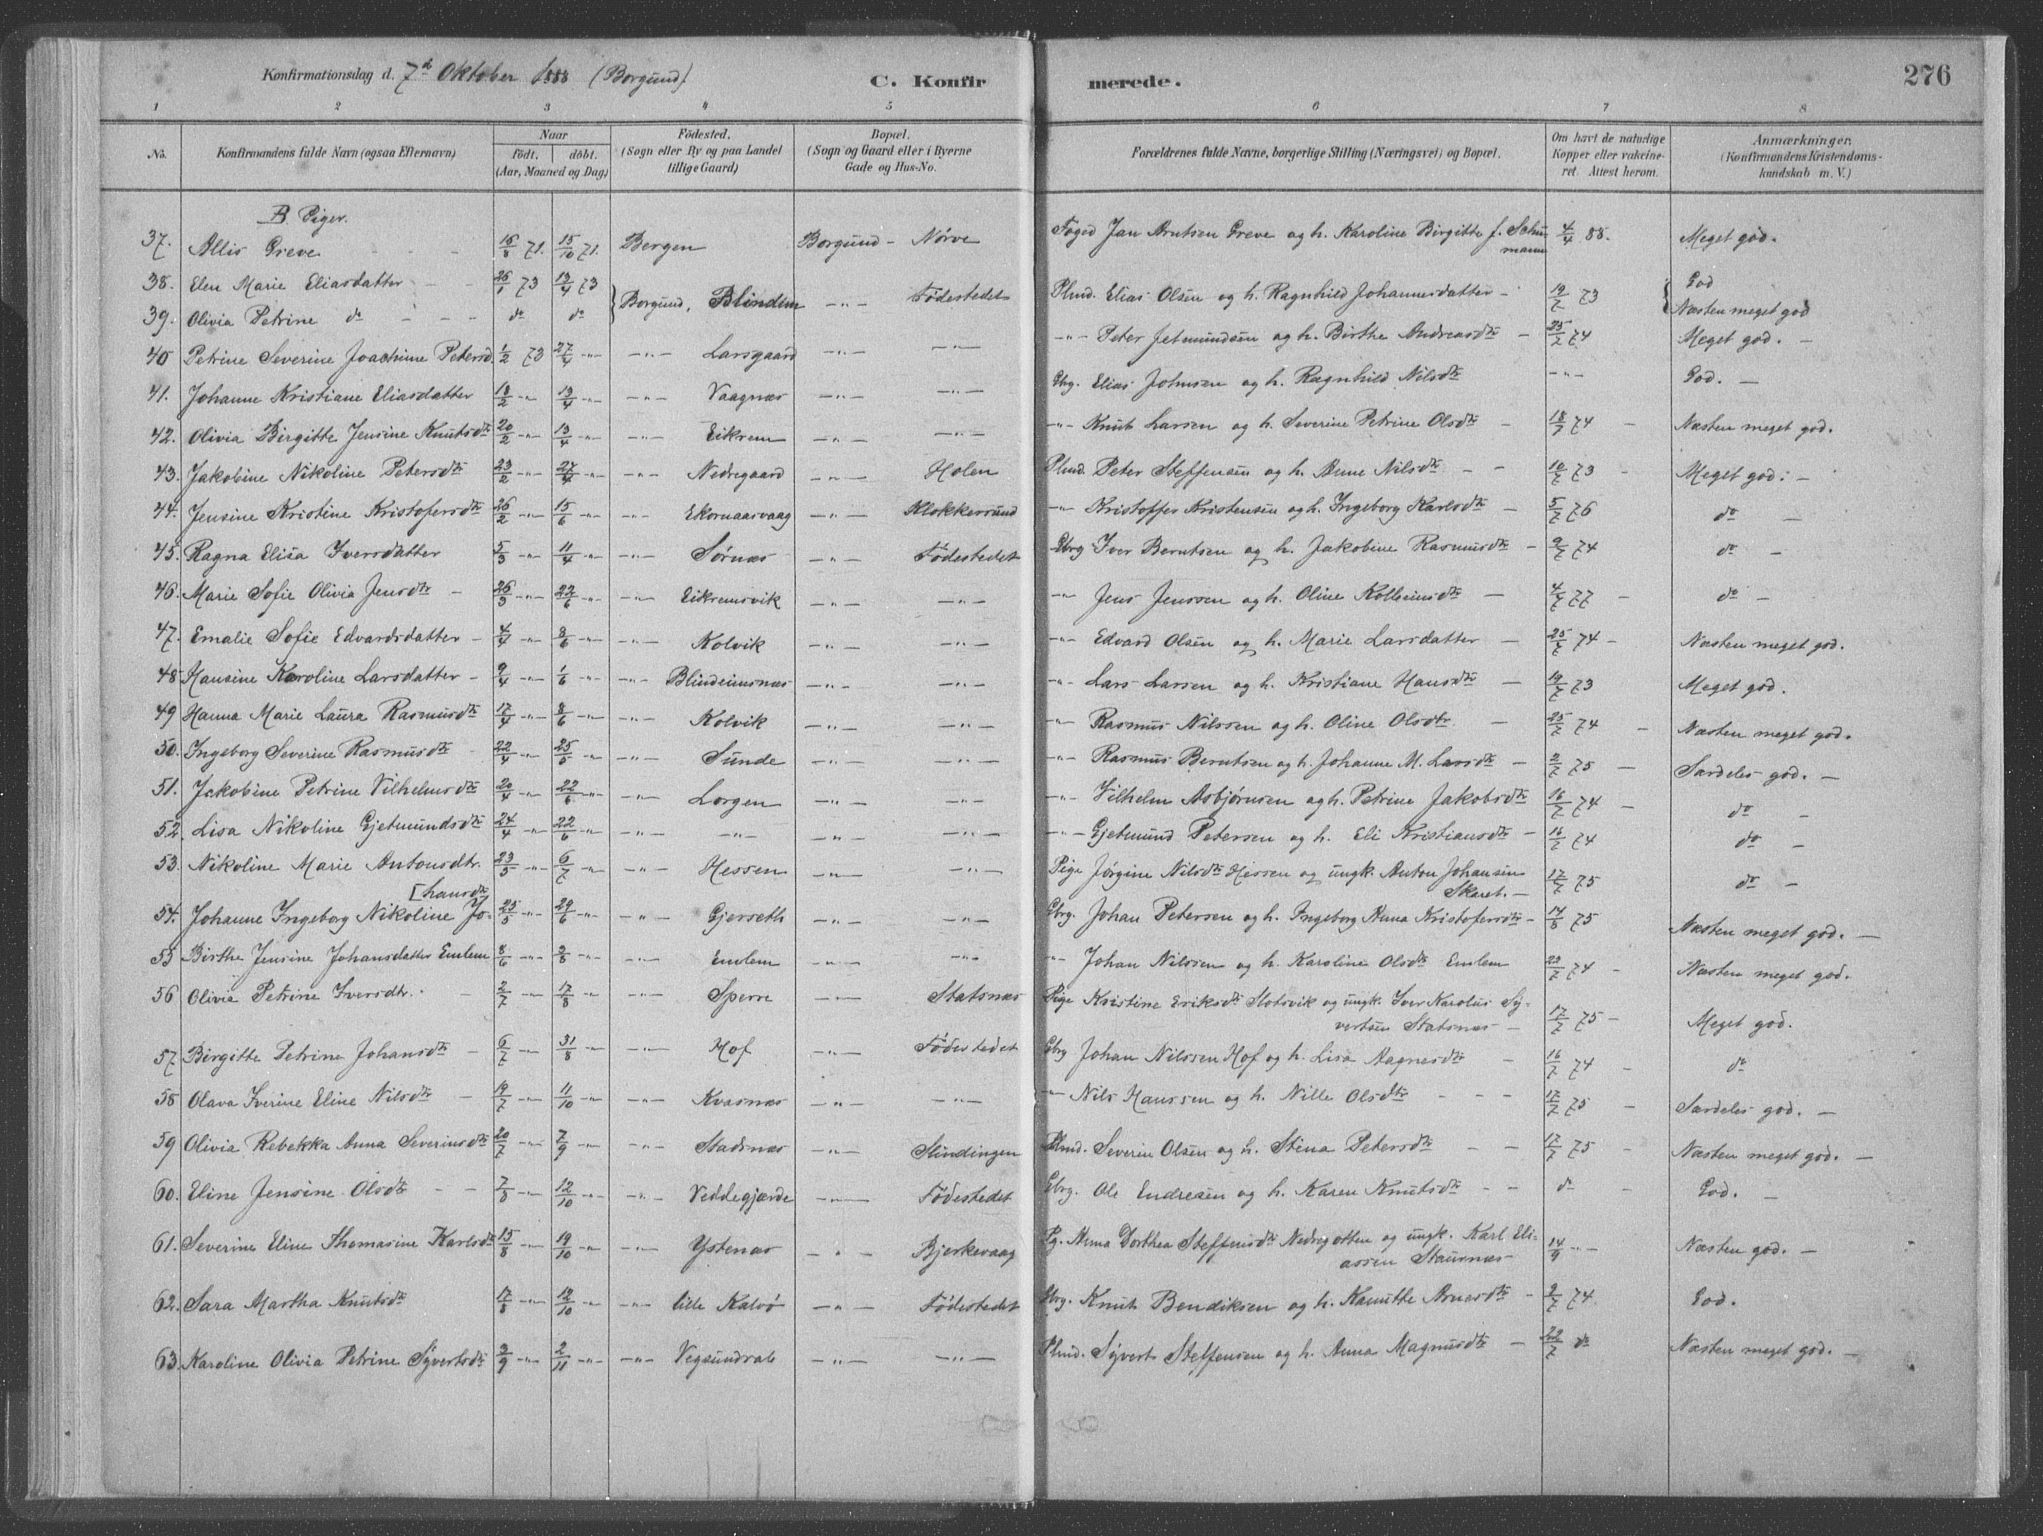 Konfirmationsdag d. 7d Oktober 1888 (Borgund)
C. Konfirmerede.
276
1 2 3 4 5 6 7 8
No. Konfirmandens fulde Navn (ogsaa Efternavn) Naar födt. döbt. (Aar, Moaned og Dag) Födested. (Sogn eller By og paa Landet tillige Gaard) Bopæl. (Sogn og Gaard eller i Byerne Gade og Hus-No. Forældrenes fulde Navne, borgerlige Stilling (Næringsvei) og Bopæl. Om havt de naturlige Kopper eller vakcineret. Attest herom. Anmærkninger. (Konfirmandens Kristendomskundskab m. V.)
B. Piger.
37. Allis Greve 16/8 71. 15/10 71. Bergen Borgund - Nørve Foged Jan Arntsen Greve og h. Karoline Birgitte f. Schumann 4/4 88. Meget god.
38. Elen Marie Eliasdatter 26/1 73 13/4 73 } Borgund, Blindem -"- Fødestedet Plmd. Elias Olsen og h. Ragnhild Johannesdatter - 19/7 73 { God
39. Olivia Petrine do do do Næsten meget god
40 Petrine Severine Joachime Petersd. 1/2 73 27/4 -"- -"- Larsgaard -"- -"- -"- Peter Jetmundsen og h. Birthe Andreasdtr - 25/7 74 Meget god. -
41. Johanne Kristiane Eliasdatter 18/2 -"- 13/4 -"- -"- Vaagnæs -"- -"- Gbrg. Elias Johnsen og h. Ragnhild Nilsdtr -"- God. -
42. Olivia Birgitte Jensine Knutsdtr 20/2 -"- 13/4 -"- -"- Eikrem -"- -"- -"- Knut Larsen og h. Severine Petrine Olsdtr - 18/7 74 - Næsten meget god.
43. Jakobine Nikoline Petersdtr 23/2 -"- 27/4 -"- -"- Nedregaard -"- Holen Plmd. Peter Steffensen og h. Anne Nilsdtr - - 10/7 73 - Meget god. -
44. Jensine Kristine Kristofersdtr 26/2 -"- 15/6 -"- -"- Ekornaasvaag -"- Klokkersund -"- Kristoffer Kristensen og h. Ingeborg Karlsdtr - 5/7 76 do -
45. Ragna Elisa Iversdatter 5/3 -"- 11/4 -"- -"- Sørnæs -"- Fødestedet Gbrg Iver Berntsen og h. Jakobine Rasmusdtr - 9/7 74 do -
46. Marie Sofie Olivia Jensdtr - 26/3 -"- 22/6 -"- -"- Eikremsvik -"- -"- -"- Jens Jenssen og h. Oline Kolbeinsdtr - 4/7 77 - do -
47. Emalie Sofie Edvardsdatter - 4/4 -"- 8/6 -"- -"- Kolvik -"- -"- -"- Edvard Olsen og h. Marie Larsdatter - 25/7 74 - Næsten meget god.
48 Hansine Karoline Larsdatter - 9/4 -"- 1/6 -"- Blindeimsnæs -"- -"- -"- Lars Larsen og h. Kristiane Hansdtr - 19/7 73 Meget god.
49 Hanna Marie Laura Rasmusdtr 17/4 -"- 8/6 -"- -"- Kolvik -"- -"- -"- Rasmus Nilssen og h. Oline Olsdtr - 25/7 74 - Næsten meget god.
50. Ingeborg Severine Rasmusdtr 22/4 -"- 25/5 -"- -"- Sunde -"- -"- -"- Rasmus Berntsen og h. Johanne M. Larsdtr - 2/7 75 - Særdeles god. -
51. Jakobine Petrine Vilhelmsdtr 20/4 -"- 22/6 -"- -"- Lorgen -"- -"- -"- Vilhelm Asbjørnsen og h. Petrine Jakobsdtr 16/7 74 - do -
52. Lisa Nikoline Gjetmundsdtr 24/4 -"- 22/6 -"- -"- -"- -"- -"- -"- Gjetmund Petersen og h. Eli Kristiansdtr - 16/7 74 do -
53. Nikoline Marie Antonsdtr. 23/5 -"- 6/7 -"- -"- Hessen -"- -"- Pige Jørgine Nilsdtr Hessen og ungk. Anton Johansen Skaret. - 17/7 75 do -
54. Johanne Ingeborg Nikoline Jo- [hansdtr 25/5 -"- 29/6 -"- -"- Gjerseth -"- -"- Gbrg. Johan Petersen og h. Ingeborg Anna Kristofersdtr - 14/8 75 Næsten meget god. -
55 Birthe Jensine Johansdatter Emlem 8/6 -"- 3/8 -"- -"- Emlem -"- -"- -"- Johan Nilssen og h. Karoline Olsdtr Emlem 23/7 74 - Næsten meget god.
56 Olivia Petrine Iversdtr. - 2/7 -"- 17/8 -"- -"- Sperre -"- Statsnæs Pige Kristine Eriksdtr Slotsvik og ungk. Iver Karolus Syvertsen Statsnæs - 17/7 75 - Meget god.
57 Birgitte Petrine Johansdtr - 6/7 -"- 31/8 -"- -"- Hof -"- Fødestedet Gbrg Johan Nilssen Hof og h. Lisa Aagnesdtr - 16/7 74 - do
58 Olava Iverine Eline Nilsdtr - 19/7 -"- 11/10 -"- -"- Kvasnæs -"- -"- -"- Nils Hanssen og h. Nille Olsdtr - - - 17/7 75 - Særdeles god. -
59 Olivia Rebekka Anna Severinsdtr 20/7 -"- 7/9 -"- -"- Stadsnæs -"- Slindingen Plmd. Severin Olsen og h. Stina Petersdtr - - 17/7 75 - Næsten meget god. -
60. Eline Jensine Olsdtr - - 7/8 -"- 12/10 -"- -"- Veddegjærde -"- Fødestedet Gbrg. Ole Endresen og h. Karen Knutsdtr - - do - God. -
61. Severine Eline Thomasine Karlsdtr 15/8 -"- 19/10 -"- -"- Ystenæs -"- Bjerkevaag Pg. Anna Dorthea Steffensdtr Nedregotten og ungk. Karl Eliassen Staurnæs - 14/9 -"- Næsten god. -
62. Sara Martha Knutsdtr 17/8 -"- 12/10 -"- -"- lille Kalvø -"- Fødestedet Gbrg. Knut Bendiksen og h. Kanutte Arnesdtr - 2/7 74. God.
63. Karoline Olivia Petrine Syvertsdtr 3/9 -"- 2/11 -"- -"- Vegsundrab -"- -"- Plmd. Syvert Steffensen og h. Anna Magnusdtr - 22/7 do Næsten meget god. -